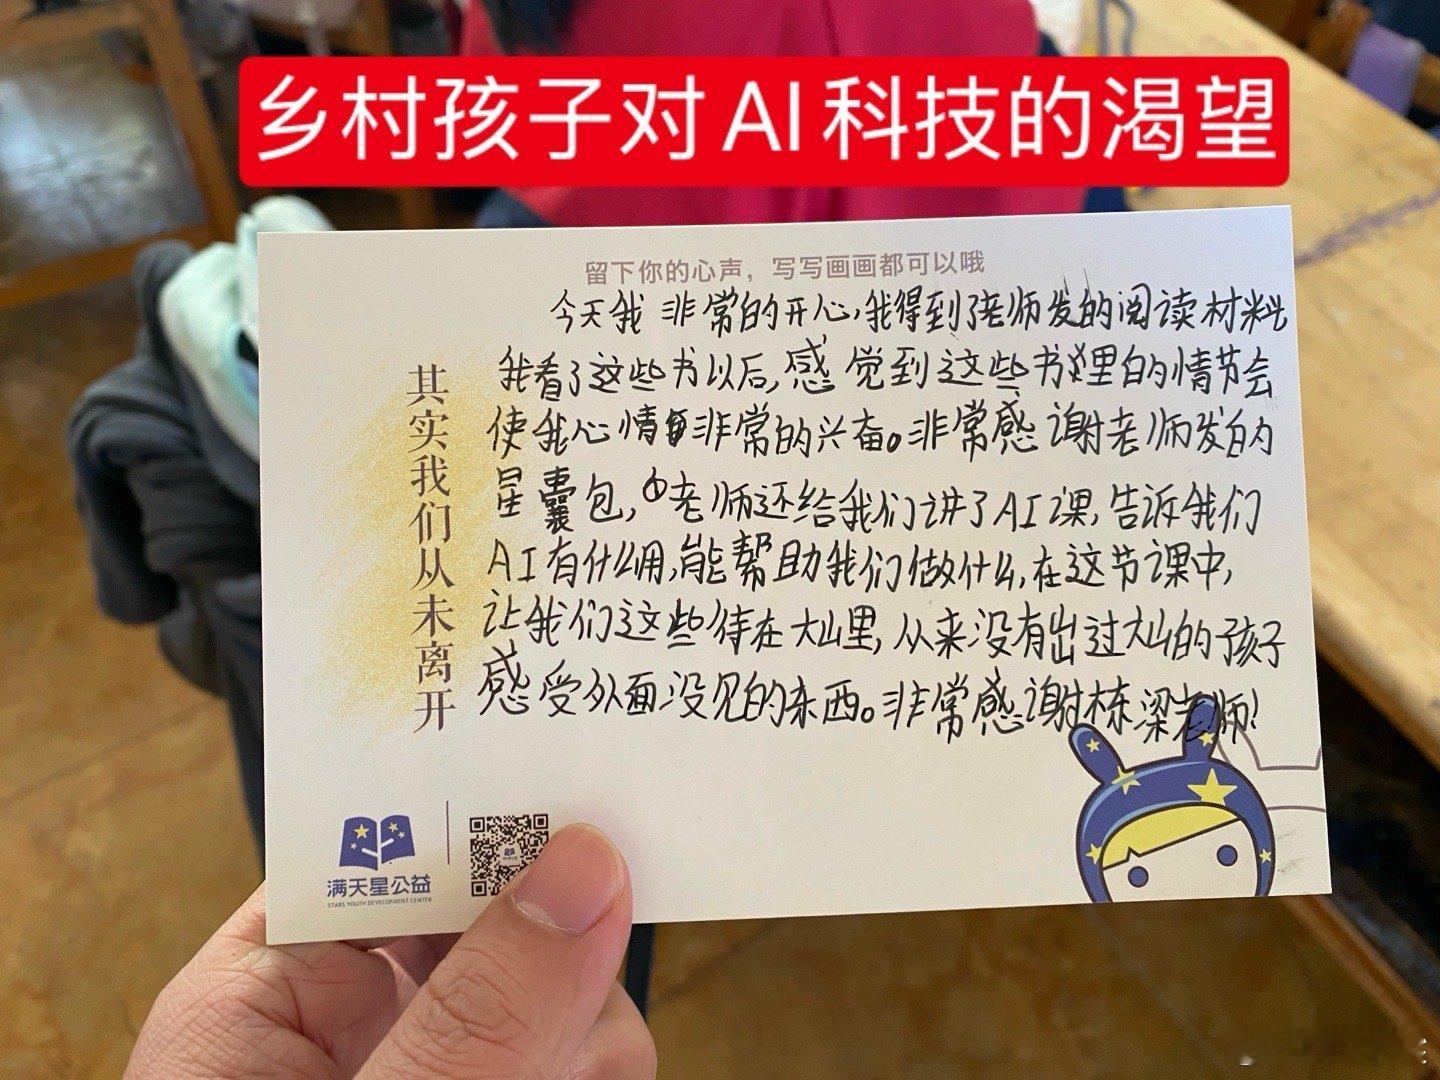 乡村孩子对AI科技的渴望
留下你的心声，写写画画都可以哦
今天我非常的开心，我得到了老师发的阅读材料
我看了这些书以后，感觉到这些书里的情节会
使我心情非常的兴奋。非常感谢老师发的
星囊包，老师还给我们讲了AI课，告诉我们
AI有什么用，能帮助我们做什么，在这节课中，
让我们这些待在大山里，从来没有出过大山的孩子
感受外面没见的东西。非常感谢栋梁老师！
其实我们从未离开
满天星公益
STARS YOUTH DEVELOPMENT CENTER